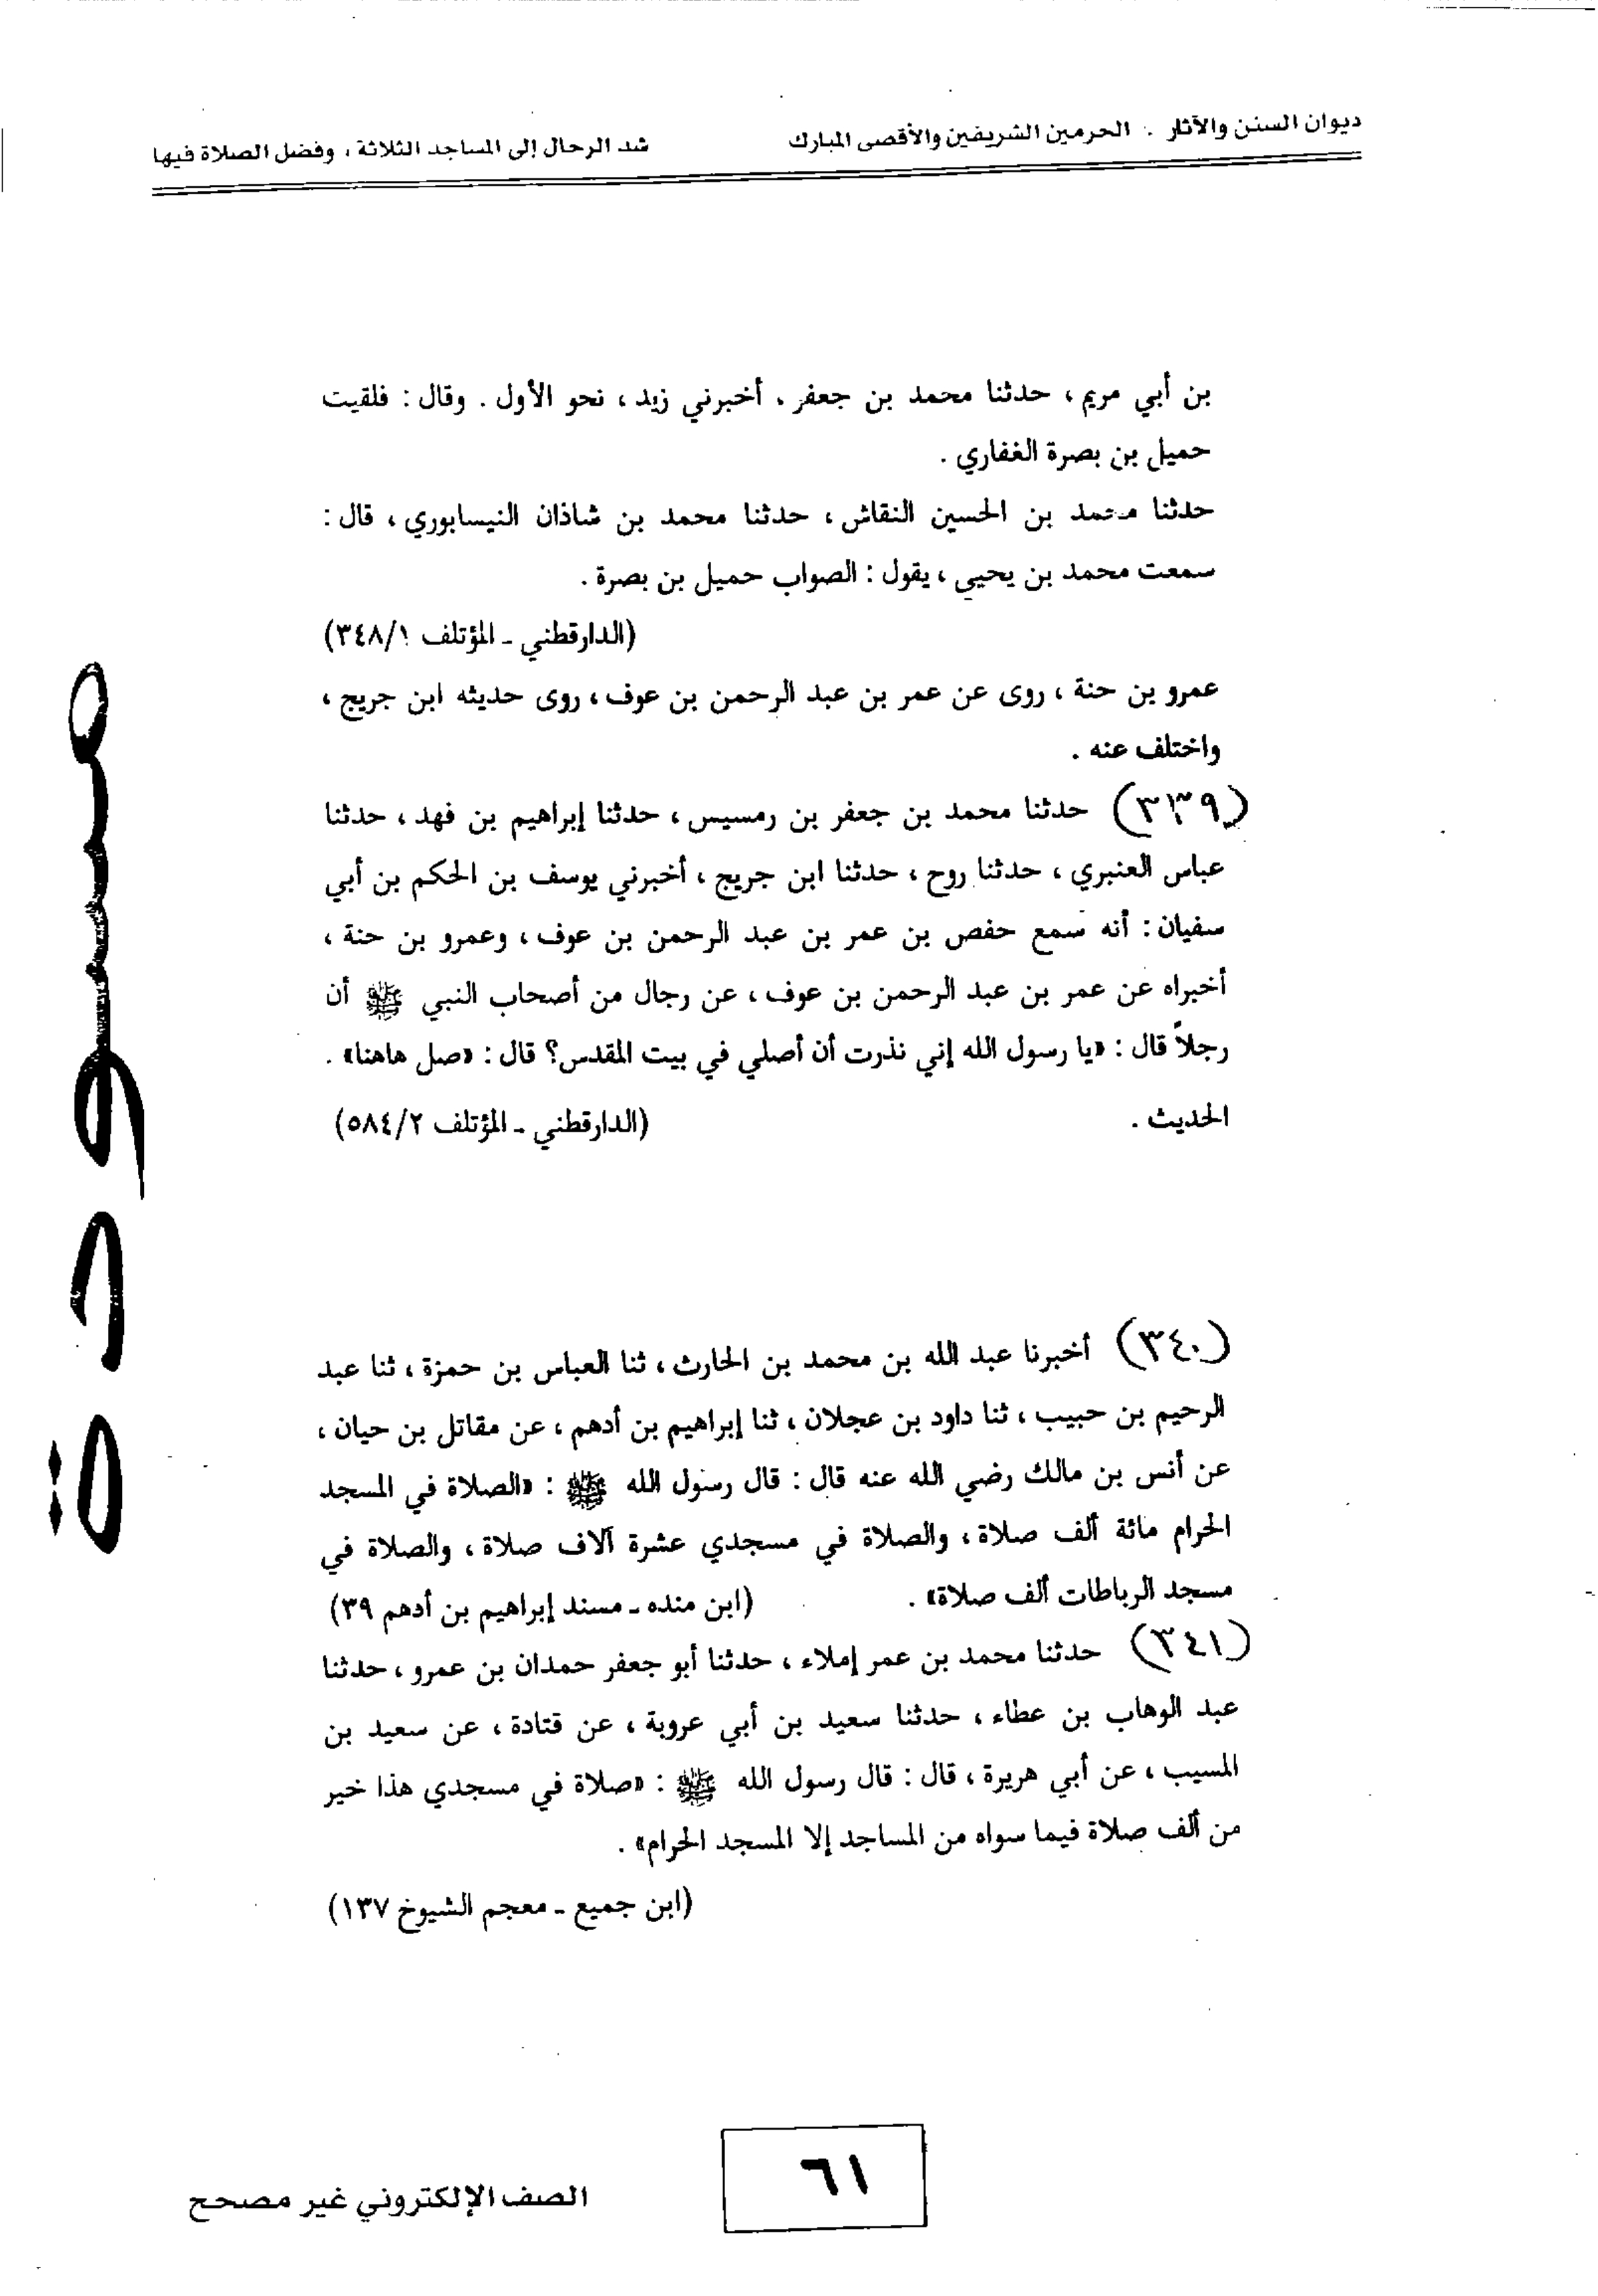 ديوان السنن والآثار . الحرمين الشريفين والأقصى المبارك
شد الرحال إلى المساجد الثلاثة ، وفضل الصلاة فيها
بن أبي مريم ، حدثنا محمد بن جعفر ، أخبرني زيد ، نحو الأول . وقال : فلقيت
حميل بن بصرة الغفاري .
حدثنا محمد بن الحسين النقاش ، حدثنا محمد بن شاذان النيسابوري ، قال :
سمعت محمد بن يحيى ، يقول : الصواب حميل بن بصرة .
(الدارقطني ـ المؤتلف ٣٤٨/١)
عمرو بن حنة ، روى عن عمر بن عبد الرحمن بن عوف ، روى حديثه ابن جريج ،
واختلف عنه .
(٣٣٩) حدثنا محمد بن جعفر بن رمسيس ، حدثنا إبراهيم بن فهد ، حدثنا
عباس العنبري ، حدثنا روح ، حدثنا ابن جريج ، أخبرني يوسف بن الحكم بن أبي
سفيان : أنه سمع حفص بن عمر بن عبد الرحمن بن عوف ، وعمرو بن حنة ،
أخبراه عن عمر بن عبد الرحمن بن عوف ، عن رجال من أصحاب النبي ﷺ أن
رجلاً قال : «يا رسول الله إني نذرت أن أصلي في بيت المقدس؟ قال : «صل هاهنا» .
الحديث . (الدارقطني ـ المؤتلف ٥٨٤/٢)
(٣٤٠) أخبرنا عبد الله بن محمد بن الحارث ، ثنا العباس بن حمزة ، ثنا عبد
الرحيم بن حبيب ، ثنا داود بن عجلان ، ثنا إبراهيم بن أدهم ، عن مقاتل بن حيان ،
عن أنس بن مالك رضي الله عنه قال : قال رسول الله ﷺ : «الصلاة في المسجد
الحرام مائة ألف صلاة ، والصلاة في مسجدي عشرة آلاف صلاة ، والصلاة في
مسجد الرباطات ألف صلاة» . (ابن منده ـ مسند إبراهيم بن أدهم ٣٩)
(٣٤١) حدثنا محمد بن عمر إملاء ، حدثنا أبو جعفر حمدان بن عمرو ، حدثنا
عبد الوهاب بن عطاء ، حدثنا سعيد بن أبي عروبة ، عن قتادة ، عن سعيد بن
المسيب ، عن أبي هريرة ، قال : قال رسول الله ﷺ : «صلاة في مسجدي هذا خير
من ألف صلاة فيما سواه من المساجد إلا المسجد الحرام» .
(ابن جميع ـ معجم الشيوخ ١٣٧)
مسودة
٦١
الصف الإلكتروني غير مصحح